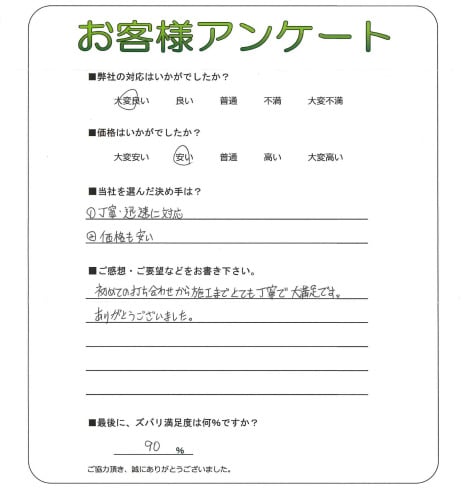 お客様アンケート
■弊社の対応はいかがでしたか？
大変良い 良い 普通 不満 大変不満
■価格はいかがでしたか？
大変安い 安い 普通 高い 大変高い
■当社を選んだ決め手は？
①丁寧・迅速に対応
②価格も安い
■ご感想・ご要望などをお書き下さい。
初めての打ち合わせから施工までとても丁寧で大満足です。
ありがとうございました。
■最後に、ズバリ満足度は何%ですか？
90 %
ご協力頂き、誠にありがとうございました。